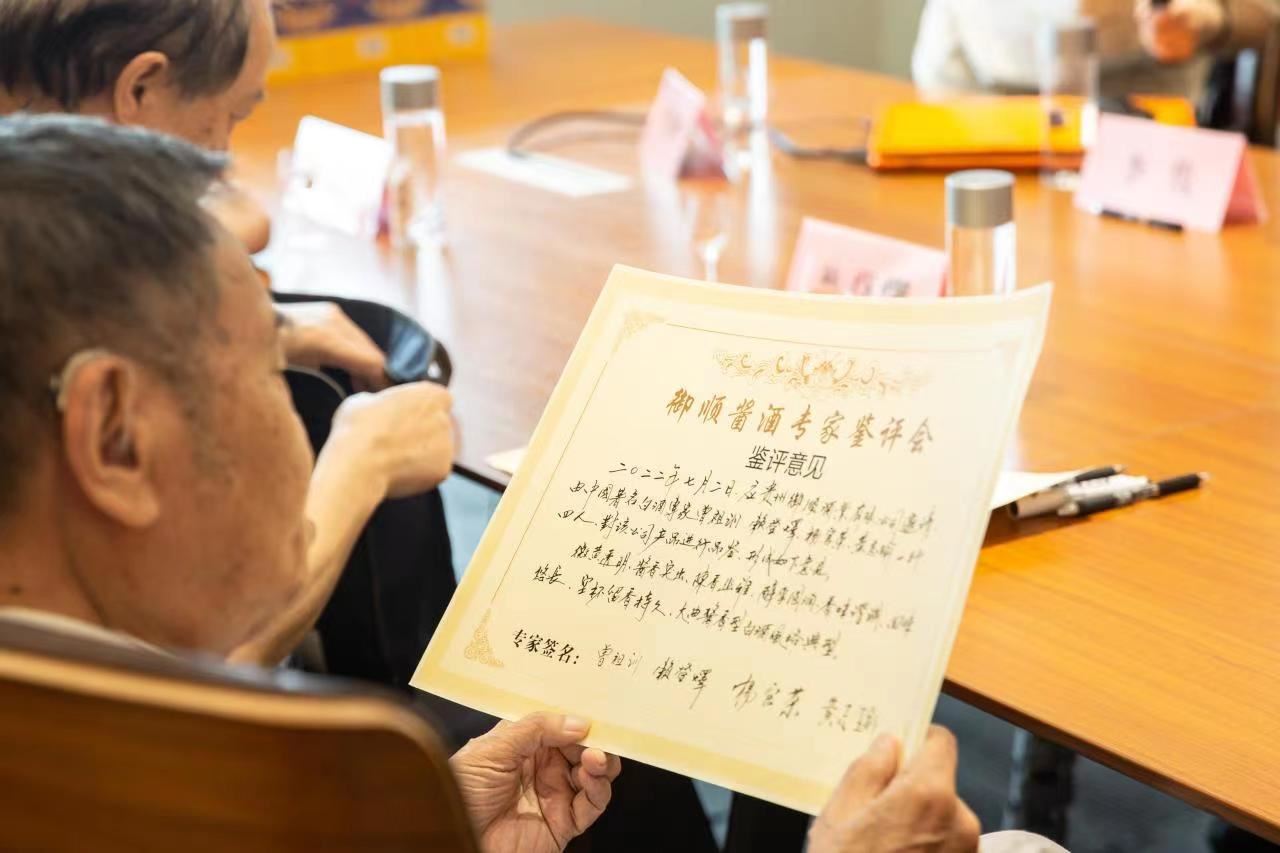 御顺酱酒专家鉴评会
鉴评意见
二〇二二年七月二日,应贵州御顺酒业有限公司邀请
由中国著名白酒专家曾祖训、赖登燡、杨官荣、一行
四人,对该公司产品进行品鉴,形成如下意见:
微黄透明、酱香突出、陈香幽雅、醇厚圆润、香味谐调、回味
悠长、空杯留香持久、大曲酱香型白酒风格典型。
专家签名: 曾祖训 赖登燡 杨官荣